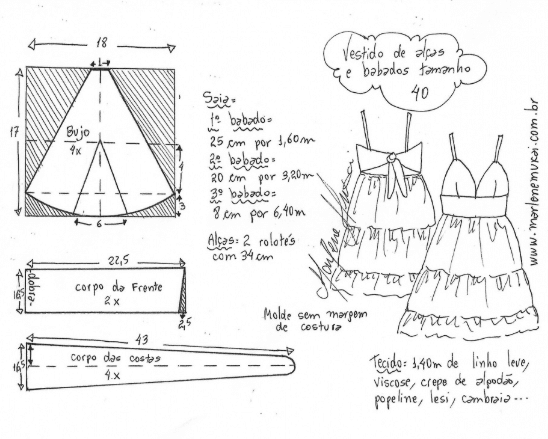 Vestido de alças
e babados tamanho
40
18
1
17
Bujo
4x
4
3
6
Saia:
1º babado:
25 cm por 1,60m
2º babado:
20 cm por 3,20m
3º babado:
8 cm por 6,40m
Alças: 2 rolotês
com 34cm
22,5
dobra
16,5
corpo da Frente
2x
2,5
Molde sem margem
de costura
43
16,5
corpo das costas
4x
Tecido: 1,40m de linho leve,
viscose, crepe de algodão,
popeline, lesi, cambraia...
Marlene Mukai
www.marlenemukai.com.br